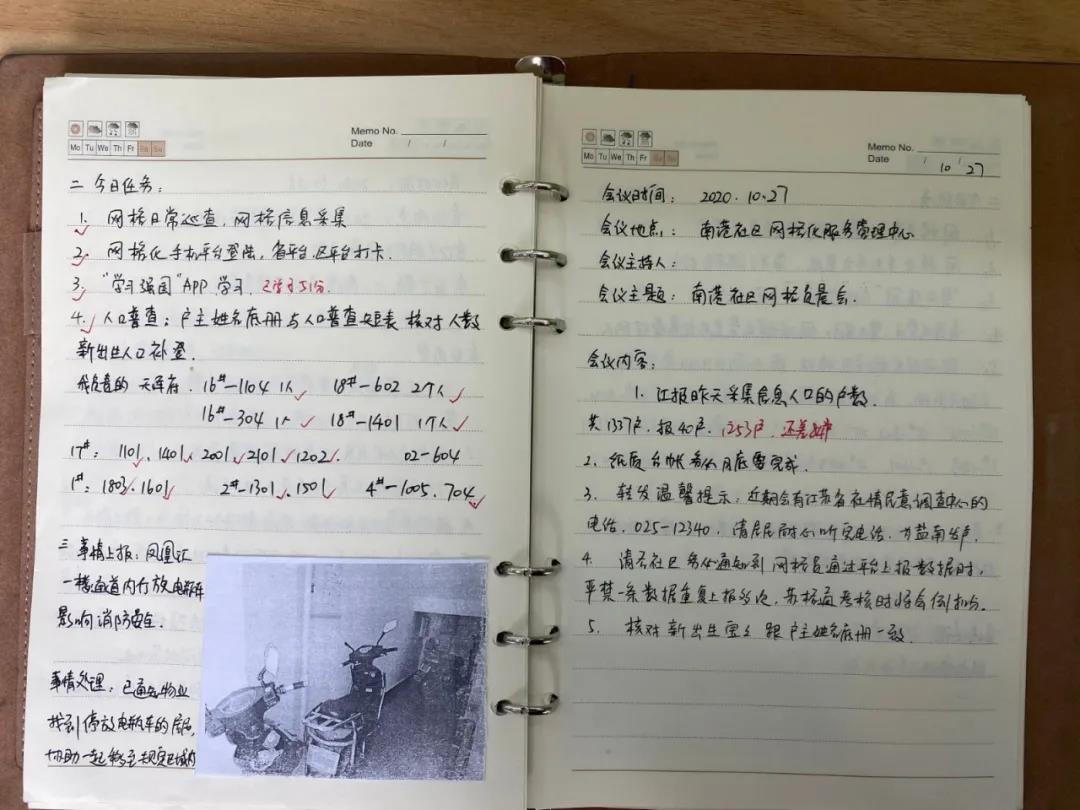 Mo Tu We Th Fr Sa Su
Memo No.
Date / /
二 今日任务:
1. 网格日常巡查, 网格信息采集
2. 网格化手机平台登陆, 省平台, 区平台打卡.
3. "学习强国"APP学习. 已学习51分.
4. 人口普查: 户主姓名底册与人口普查短表核对人数
新出生人口补登.
我负责的 16#-1104 1人 18#-602 2个人
16#-304 1个 18#-1401 1个人
17#: 1101. 1401. 2001. 2101. 1202. 02-604
1#: 1803. 1601 2#-1301. 1501 4#-1005. 704.
三 事情上报: 凤凰汇
一楼通道内停放电瓶车
影响消防安全.
事情处理: 已通知物业
找到停放电瓶车的居民,
协助一起移至规定区域内
Mo Tu We Th Fr Sa Su
Memo No.
Date / 10 / 27
会议时间: 2020.10.27
会议地点: 南港社区网格化服务管理中心
会议主持人:
会议主题: 南港社区网格员晨会.
会议内容:
1. 汇报昨天采集信息人口的户数.
共1337户, 报40户. 1253户. 还差
2. 纸质台帐务必月底需完成.
3. 转发温馨提示: 近期会有江苏省社情民意调查中心的
电话. 025-12340, 请居民耐心听完电话. 为盐南发声.
4. 请各社区务必通知到网格员通过平台上报数据时,
严禁一条数据重复上报多次, 苏格通考核时将会倒扣分.
5. 核对新出生宝宝跟户主姓名底册一致.